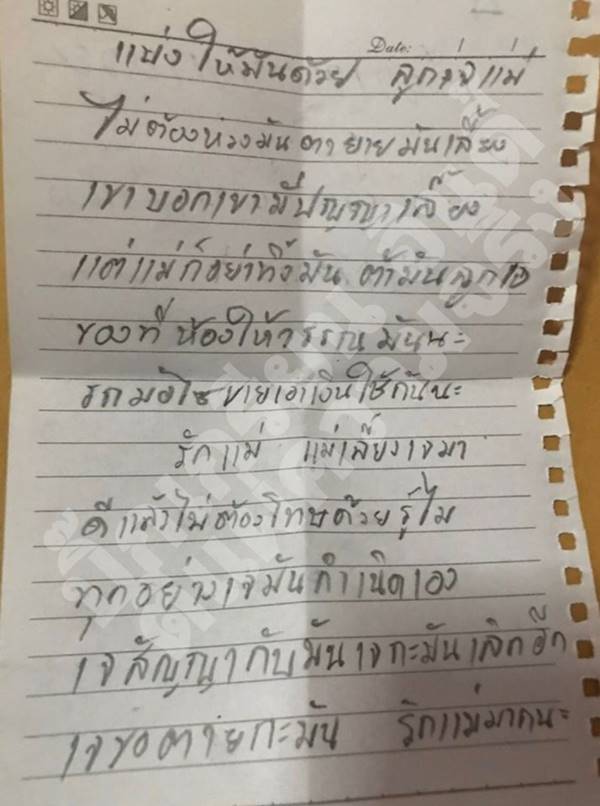 Date:
แบ่งให้มันด้วย ลูกเจแม่
ไม่ต้องห่วงมันตายายมันเลี้ยง
เขาบอกเขามีปัญญาเลี้ยง
แต่แม่ก็อย่าทิ้งมัน ถ้ามันลูกเจ
ของที่ห้องให้วรรณมันนะ
รถมอไซขายเอาเงินใช้กันนะ
รักแม่ แม่เลี้ยงเจมา
ดีแล้วไม่ต้องโทษด้วยรู้ไม
ทุกอย่างเจมันกำเนิดเอง
เจสัญญากับมันเจกะมันเลิกอีก
เจขอตายกะมัน รักแม่มากนะ